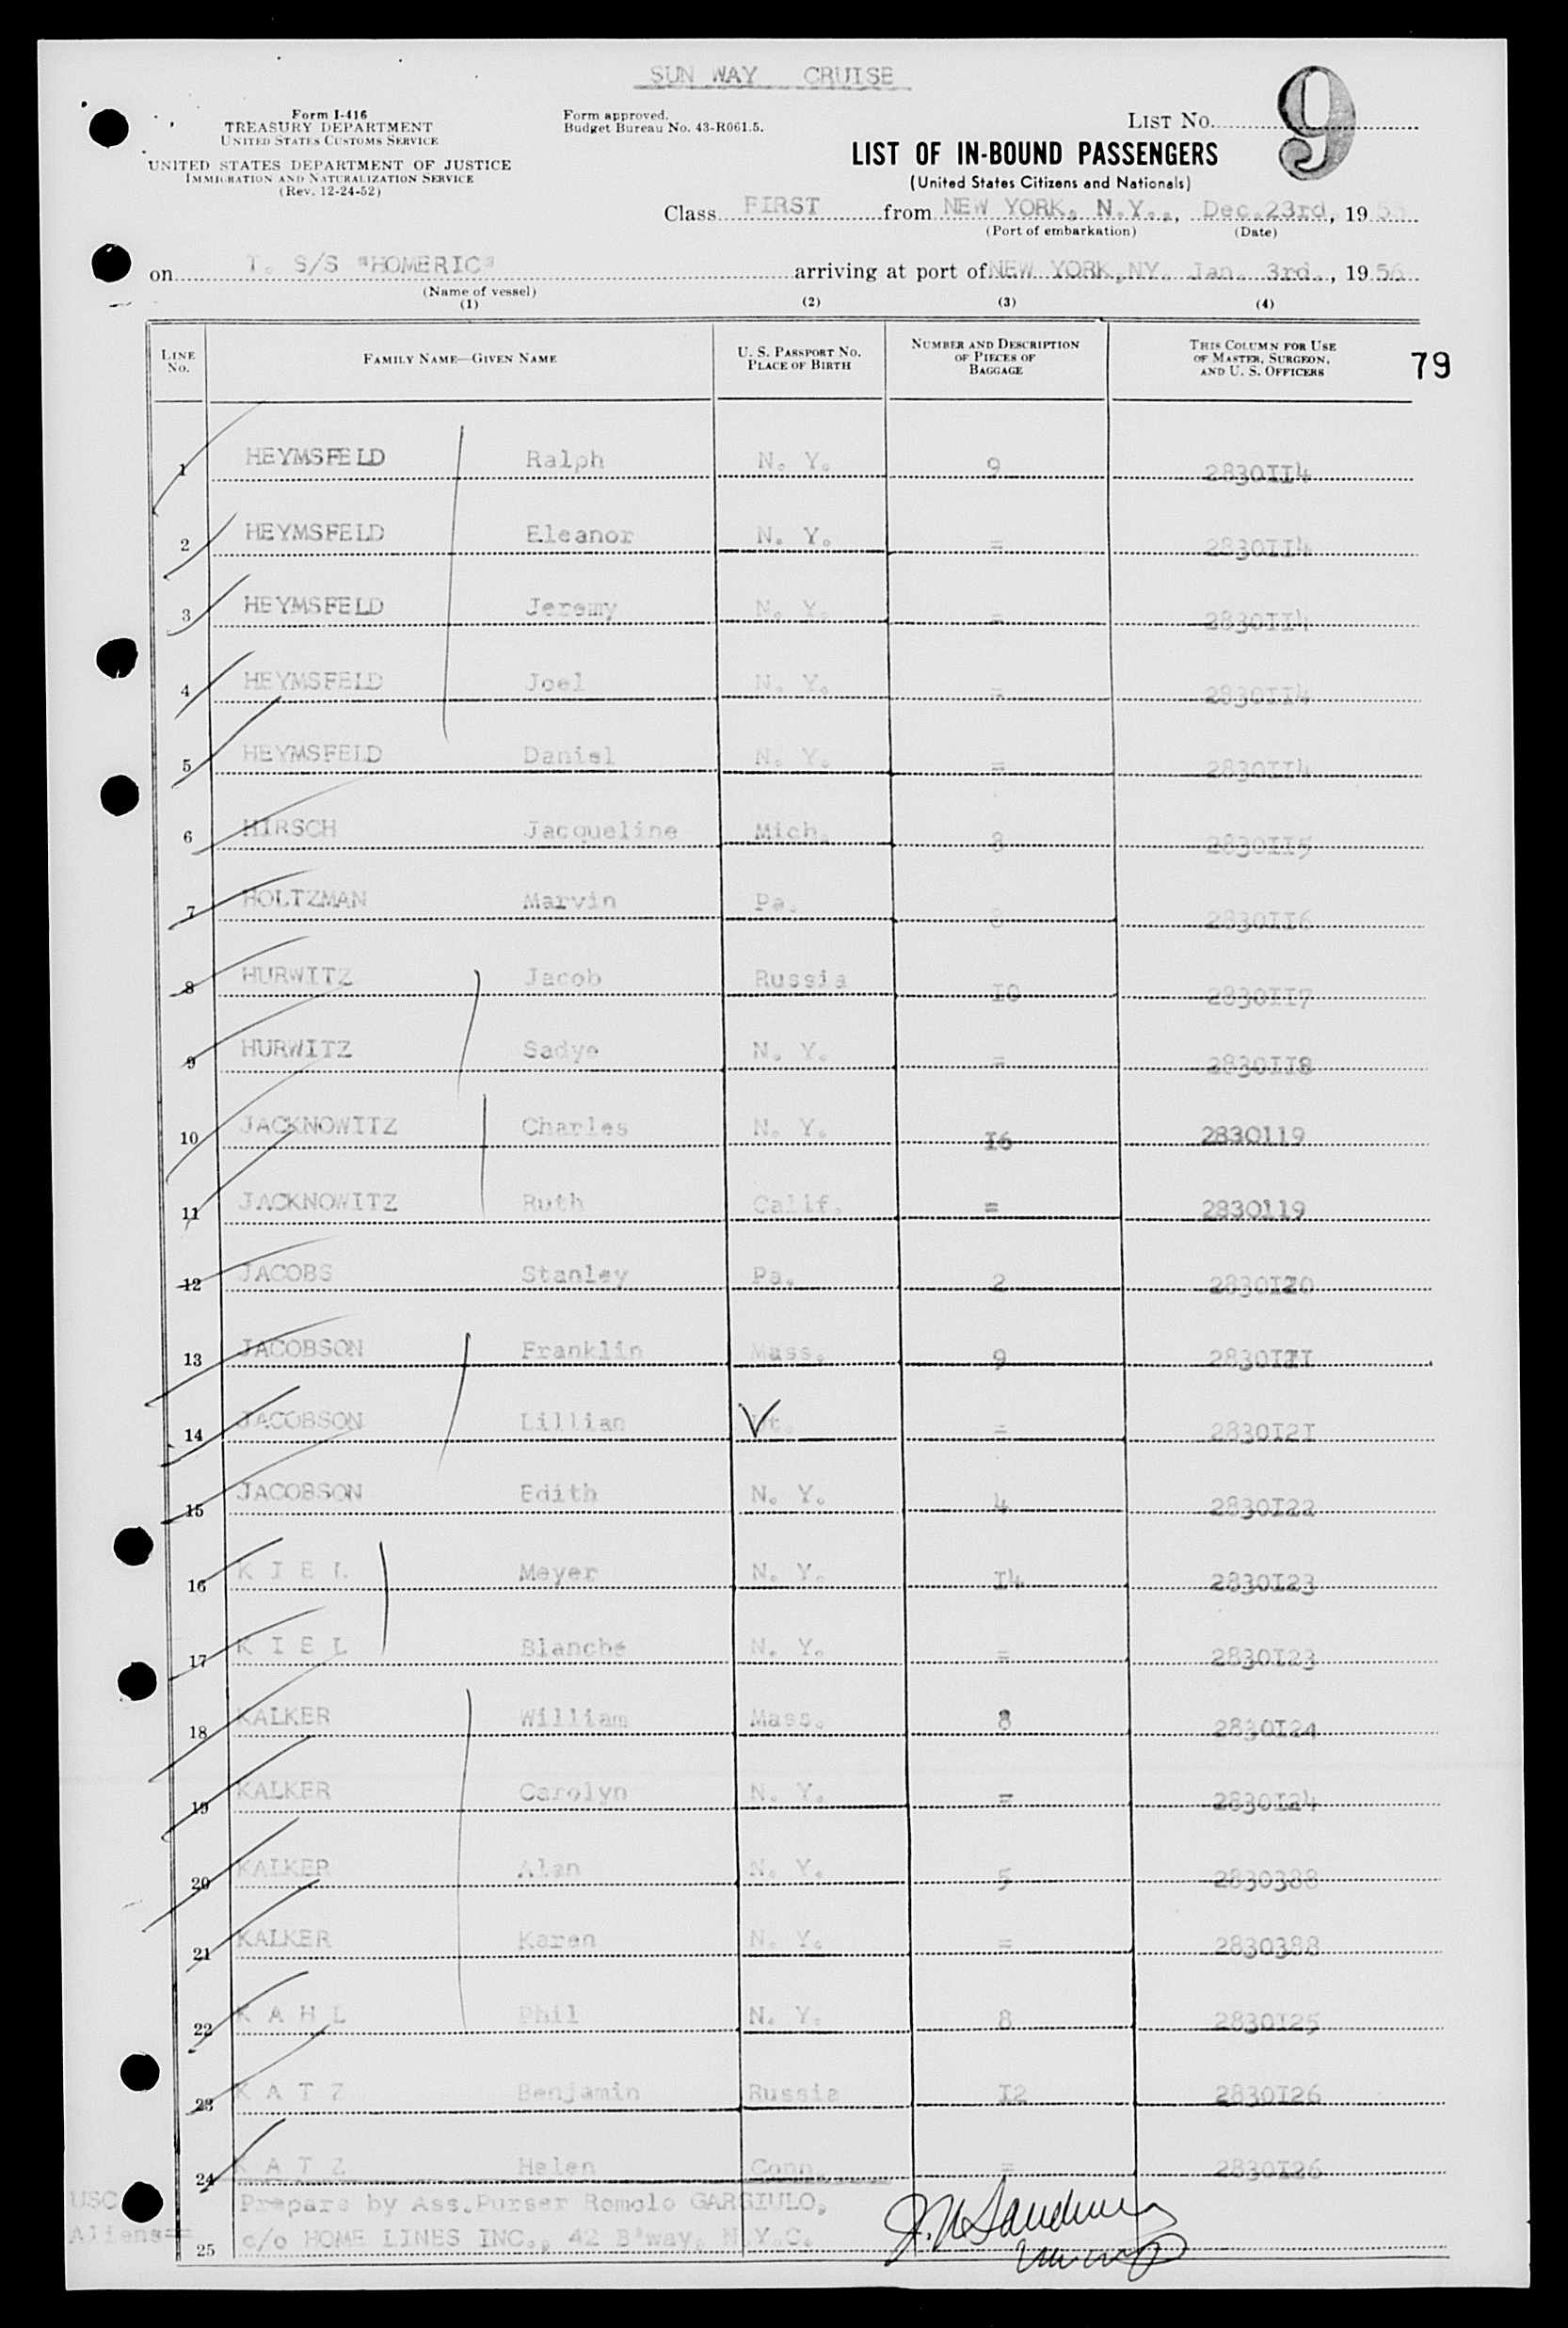 SUN WAY CRUISE
Form I-416
TREASURY DEPARTMENT
UNITED STATES CUSTOMS SERVICE
UNITED STATES DEPARTMENT OF JUSTICE
IMMIGRATION AND NATURALIZATION SERVICE
(Rev. 12-24-52)
Form approved.
Budget Bureau No. 43-R061.5.
LIST No. 9
LIST OF IN-BOUND PASSENGERS
(United States Citizens and Nationals)
Class FIRST from NEW YORK, N.Y., Dec.23rd, 1955
(Port of embarkation) (Date)
on T. S/S "HOMERIC" arriving at port of NEW YORK,NY. Jan. 3rd., 1956
(Name of vessel)
(1) (2) (3) (4)
LINE No. FAMILY NAME—GIVEN NAME U. S. PASSPORT No. PLACE OF BIRTH NUMBER AND DESCRIPTION OF PIECES OF BAGGAGE THIS COLUMN FOR USE OF MASTER, SURGEON, AND U. S. OFFICERS
79
1 HEYMSFELD Ralph N. Y. 9 2830II4
2 HEYMSFELD Eleanor N. Y. = 2830II4
3 HEYMSFELD Jeremy N. Y. = 2830II4
4 HEYMSFELD Joel N. Y. = 2830II4
5 HEYMSFELD Daniel N. Y. = 2830II4
6 HIRSCH Jacqueline Mich. 8 2830II5
7 HOLTZMAN Marvin Pa. 8 2830II6
8 HURWITZ Jacob Russia I0 2830II7
9 HURWITZ Sadye N. Y. = 2830II8
10 JACKNOWITZ Charles N. Y. I6 2830119
11 JACKNOWITZ Ruth Calif. = 2830119
12 JACOBS Stanley Pa. 2 2830I20
13 JACOBSON Franklin Mass. 9 2830I2I
14 JACOBSON Lillian = 2830I2I
15 JACOBSON Edith N. Y. 4 2830I22
16 K I E L Meyer N. Y. I4 2830I23
17 K I E L Blanche N. Y. = 2830I23
18 KALKER William Mass. 8 2830I24
19 KALKER Carolyn N. Y. = 2830I24
20 KALKER Alan N. Y. 5 2830388
21 KALKER Karen N. Y. = 2830388
22 K A H L Phil N. Y. 8 2830I25
23 K A T Z Benjamin Russia I2 2830I26
24 K A T Z Helen Conn. = 2830I26
USC Prepare by Ass.Purser Romolo GARGIULO,
Aliens== c/o HOME LINES INC., 42 B'way, N.Y.C.
25